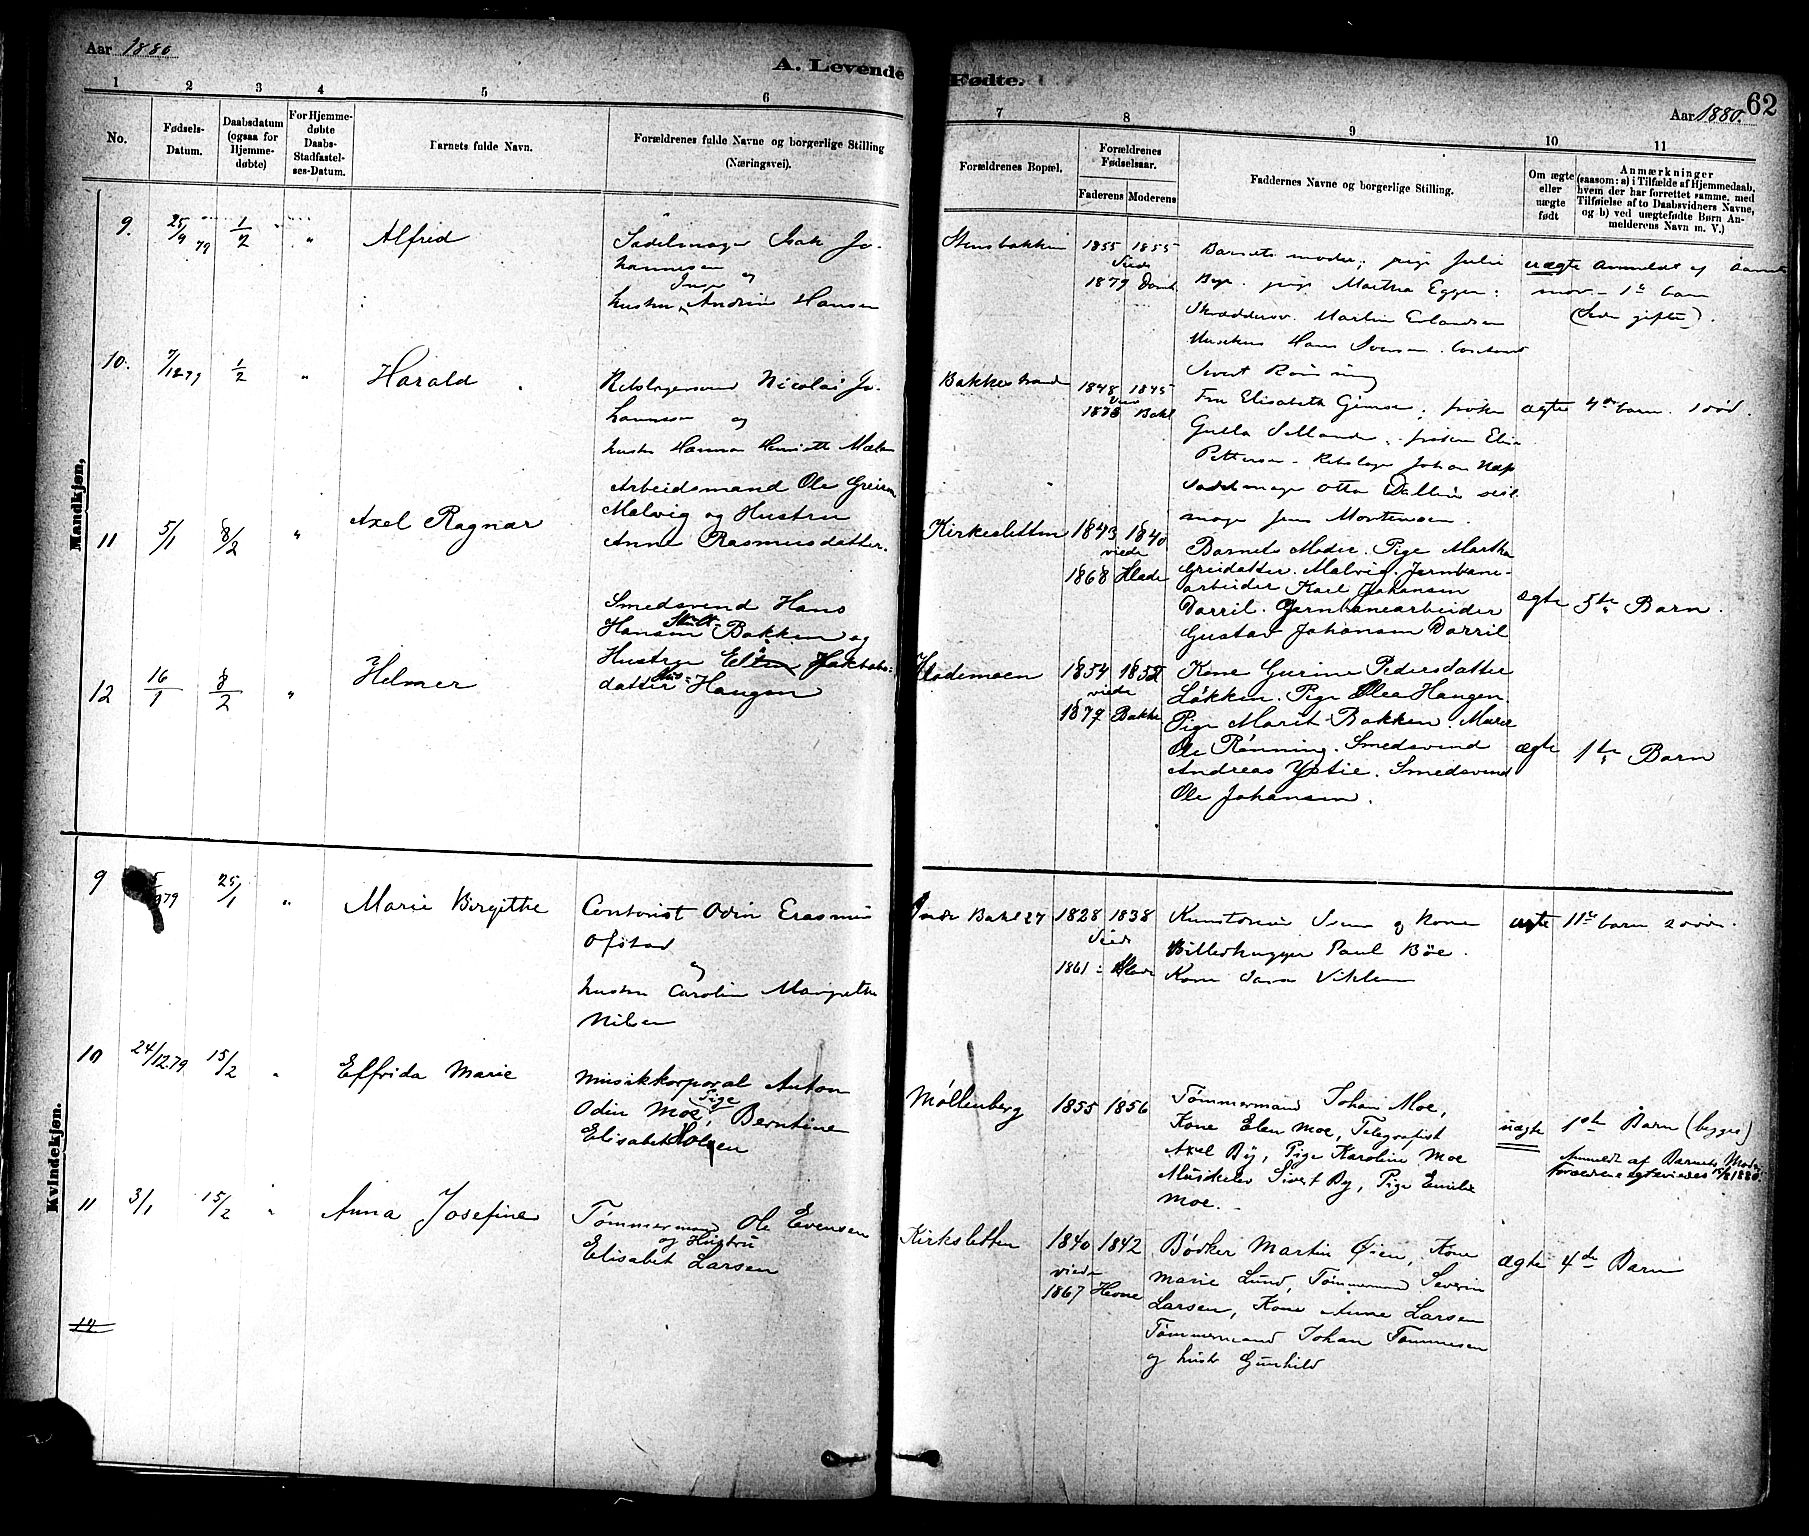 Aar 1880
A. Levende Fødte.
62
Aar 1880.
1 2 3 4 5 6 7 8 9 10 11
No.
Fødsels-Datum.
Daabsdatum (ogsaa for Hjemmedøbte)
For Hjemmedøbte Daabs-Stadfastelses-Datum.
Barnets fulde Navn.
Forældrenes fulde Navne og borgerlige Stilling (Næringsvei).
Forældrenes Bopæl.
Forældrenes Fødselsaar.
Faderens Moderens
Faddernes Navne og borgerlige Stilling.
Om ægte eller uægte født
Anmærkninger (saasom: a) i Tilfælde af Hjemmedaab, hvem der har forrettet samme, med Tilføielse af to Daabsvidners Navne, og b) ved uægtefødte Børn Anmelderens Navn m. V.)
Mandkjøn,
9. 25/9 79 1/2 " Alfred
Sadelmager Isak Jo-
hannesen og
hustru Inge Andrine Hansen
Stensbakken
1855 1855
Viede
1879 Domk
Barnets moder, pige Julie
Bye. pige Martha Eggen.
Skræddersv. Martin Erlandsen
Hans Iversen.
Sivert Rønning
uægte anmeldt af barnets
mor. 1ste barn
(Siden gifte).
10. 7/12 79 1/2 " Harald
Rebslagersvend Nicolai Jo-
hannesen og
hustru Hanna Henriette
Bakkestrand
1848 1845
Viede
1873 Bakl
Fru Elisabeth Gimse, frøken
Gulla frøken Elise
Pettersen. Rebslager Johan Næss
Sadelmager Otto Dallin seil-
mager Jens Mortensen.
ægte 4de barn. 1 død.
11 5/1 8/2 " Axel Ragnar
Arbeidsmand Ole Greisen
Malvig og Hustru
Anne Rasmusdatter.
Kirkesletten
1843 1840
viede
1868 Hlade
Barnets Moder. Pige Martha
Greidatter. Malvig. Jernbane-
arbeider Karl Johansen
Dorril. Jernbanearbeider
Gustav Johansen Dorril
ægte 5te Barn.
12 16/1 8/2 " Helmer
Smedsvend Hans
Hansen Bakken og
Hustru Jakobs-
datter Haugen
Hlademoen
1854 1852
viede
1879 Bakke
Kone Gurine Pedersdatter
Løkken. Pige Olea Haugen.
Pige Marit Bakken.
Ole Rønning. Smedsvend
Andreas Ystie. Smedsvend
Ole Johansen.
ægte 1ste Barn
Kvindekjøn.
9 79 25/1 " Marie Birgitte
Contorist Odin Erasmus
Ofstad
og
hustru Caroline Margrethe
Nilsen
Indr Bakl 27
1828 1838
Viede
1861 Hlade
Kunstdreier og kone
Billedhugger Paul Böe.
Kone Sara
ægte 11te barn 2 døde.
10 24/12.79 15/2 " Effrida Marie
Musikkorporal Anton
Odin Moe, Pige Berntine
Elisabet Holsen
Møllenberg
1855 1856
Tømmermand Johan Moe,
Kone Elen Moe, Telegrafist
Axel By, Pige Karoline Moe
Musikelev Sivert By, Pige Emilie
Moe.
uægte
1ste Barn (begges)
Anmeldt af Barnets Moder
Forældrene egtevievedes 15/8 1880.
11 3/1 15/2 " Anna Josefine
Tømmermand Ole Evensen
og Hustru
Elisabet Larsen
Kirksletten
1840 1842
viede
1867 Hevne
Bødker Martin Øien, Kone
Marie Lund, Tømmermand Severin
Larsen, Kone Anne Larsen
Tømmermand Johan Tømmesen
og hustr Gunhild
ægte 4de Barn
12